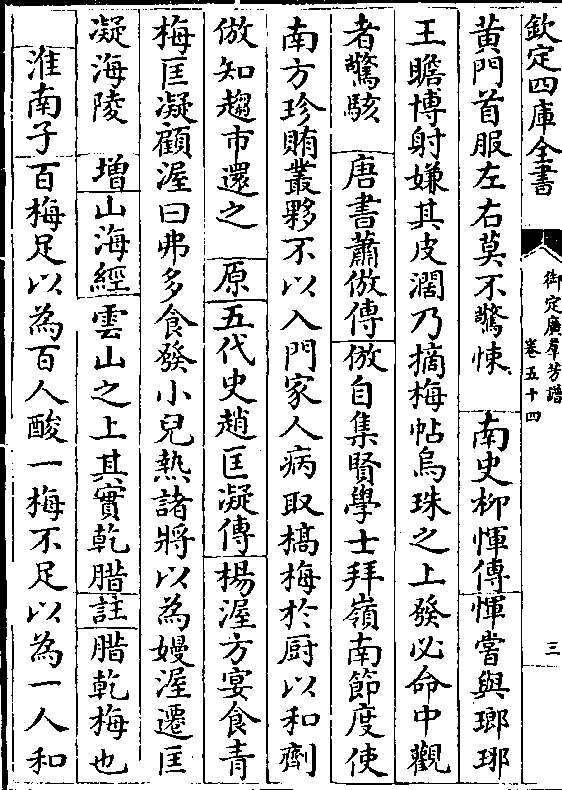 欽定四庫全書
御定廣羣芳譜
卷五十四
三
黄門首服左右莫不驚悚 南史柳惲傳惲嘗與瑯琊
王瞻博射嫌其皮濶乃摘梅帖烏珠之上發必命中觀
者驚駭 唐書蕭倣傳倣自集賢學士拜嶺南節度使
南方珍賄叢夥不以入門家人病取槁梅於厨以和劑
倣知趨市還之 原五代史趙匡凝傳楊渥方宴食青
梅匡凝顧渥曰弗多食發小兒熱諸將以為嫚渥遷匡
凝海陵 増山海經雲山之上其實乾腊註腊乾梅也
淮南子百梅足以為百人酸一梅不足以為一人和